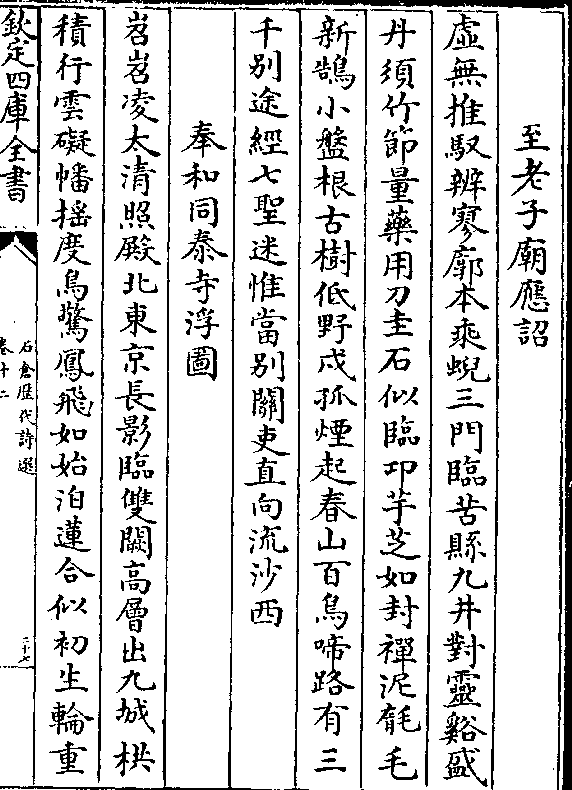 至老子廟應詔
虛無推馭辨寥廓本乘蜺三門臨苦縣九井對靈谿盛
丹須竹節量藥用刀圭石似臨邛芋芝如封禪泥毻毛
新鵠小盤根古樹低野戍孤煙起春山百鳥啼路有三
千別途經七聖迷惟當別關吏直向流沙西
奉和同泰寺浮圖
岧岧凌太清照殿北東京長影臨雙闕高層出九城栱
積行雲礙幡揺度鳥驚鳳飛如始泊蓮合似初生輪重
欽定四庫全書
石倉歴代詩選
卷十二
二十七